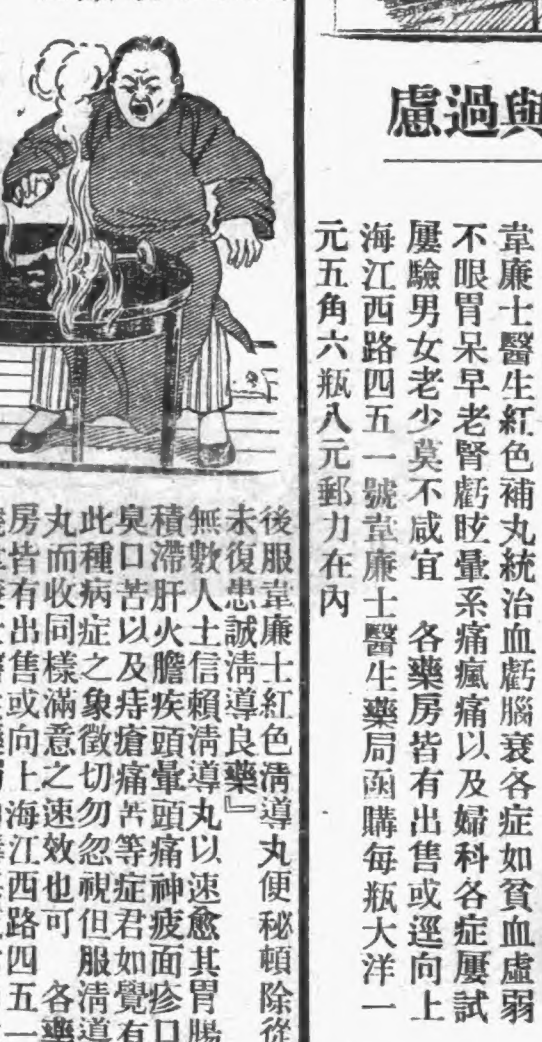 慮過與
韋廉士醫生紅色補丸統治血虧腦衰各症如貧血虛弱
不眠胃呆早老腎虧眩暈系痛瘋痛以及婦科各症屢試
屢驗男女老少莫不咸宜 各藥房皆有出售或逕向上
海江西路四五一號韋廉士醫生藥局函購每瓶大洋一
元五角六瓶八元郵力在內
後服韋廉士紅色清導丸便秘頓除從
未復患誠清導良藥』
無數人士信賴清導丸以速愈其胃腸
積滯肝火膽疾頭暈頭痛神疲面疹口
臭口苦以及痔瘡痛苦等症君如覺有
此種病症之象徵切勿忽視但服清導
丸而收同樣滿意之速效也可 各藥
房皆有出售或向上海江西路四五一